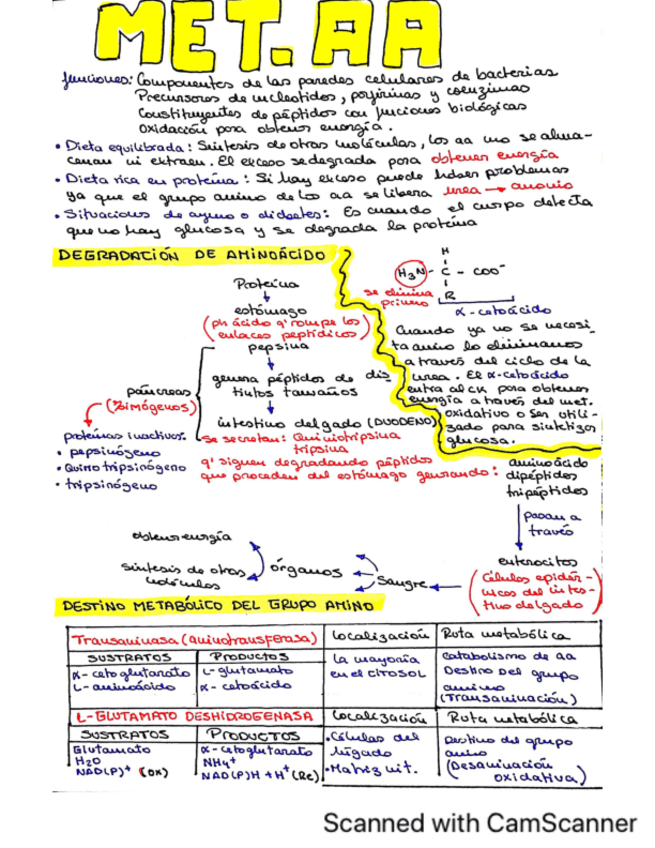 MET. AA
funciones: Componentes de las paredes celulares de bacterias
Precursores de nucleotidos, porfirinas y coenzimas
Constituyentes de péptidos con funciones biológicas
Oxidación para obtener energía.
• Dieta equilibrada: Síntesis de otras moléculas, los aa no se alma-
cenan ni extraen. El exceso se degrada para obtener energía
• Dieta rica en proteína: Si hay exceso puede haber problemas
ya que el grupo amino de los aa se libera urea → amonio
• Situaciones de ayuno o diabetes: Es cuando el cuerpo detecta
que no hay glucosa y se degrada la proteína
DEGRADACIÓN DE AMINOÁCIDO
Proteína
estómago
(ph ácido q' rompe los
enlaces peptídicos)
pepsina
genera péptidos de dis
tintos tamaños
intestino delgado (DUODENO)
páncreas
(Zimógenos)
proteínas inactivas:
• pepsinógeno
• Quimotripsinógeno
• tripsinógeno
se secretan: Quimiotripsina
tripsina
q' siguen degradando péptidos
que proceden del estómago generando:
H
H₃N - C - COO⁻
R
se elimina
primero
α-cetoácido
Cuando ya no se necesi-
ta amino lo eliminamos
a través del ciclo de la
urea. El α-cetoácido
entra al CK para obtener
energía a través del met.
oxidativo o ser utili-
zado para sintetizar
glucosa.
aminoácido
dipéptidos
tripéptidos
pasan a
través
enterocitos
(Células epidér-
micas del intes-
tino delgado)
sangre
órganos
obtener energía
síntesis de otras
moléculas
DESTINO METABÓLICO DEL GRUPO AMINO
Transaminasa (aminotransferasa) Localización Ruta metabólica
SUSTRATOS PRODUCTOS
α-cetoglutarato L-glutamato La mayoría Catabolismo de aa
L-aminoácido α-cetoácido en el CITOSOL Destino del grupo
amino
(Transaminación)
L-GLUTAMATO DESHIDROGENASA Localización Ruta metabólica
SUSTRATOS PRODUCTOS
Glutamato α-cetoglutarato • Células del Destino del grupo
H₂O NH₄⁺ hígado amino
NAD(P)⁺ (OX) NAD(P)H + H⁺ (Re) • Matriz mit. (Desaminación
oxidativa)
Scanned with CamScanner